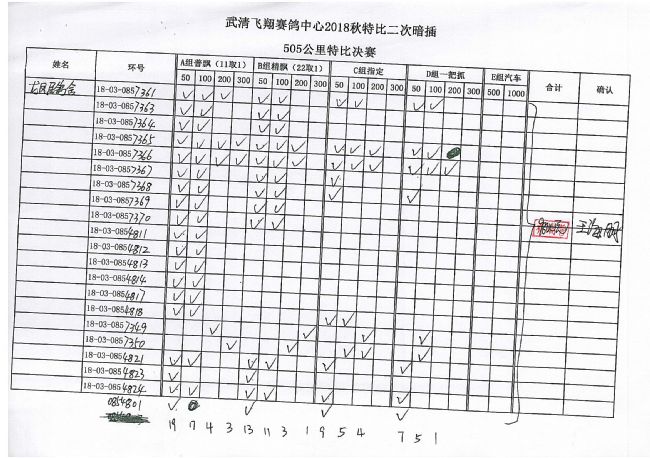 武清飞翔赛鸽中心2018秋特比二次暗插
505公里特比决赛
姓名 环号 A组普飘（11取1） B组精飘（22取1） C组指定 D组一把抓 E组汽车 合计 确认
50 100 200 300 50 100 200 300 50 100 200 300 50 100 200 300 500 1000
18-03-0857361 ✓ ✓ ✓ ✓ ✓ ✓ ✓ ✓ ✓
18-03-0857363 ✓ ✓ ✓ ✓
18-03-0857364 ✓ ✓ ✓ ✓
18-03-0857365 ✓ ✓ ✓ ✓ ✓ ✓ ✓ ✓ ✓ ✓ ✓ ✓
18-03-0857366 ✓ ✓ ✓ ✓ ✓ ✓ ✓ ✓ ✓ ✓ ✓ ✓ ✓
18-03-0857367 ✓ ✓ ✓ ✓ ✓
18-03-0857368 ✓ ✓ ✓ ✓ ✓ ✓
18-03-0857369 ✓ ✓ ✓ ✓
18-03-0857370 ✓ ✓ ✓ ✓
18-03-0854811 ✓ ✓
18-03-0854812 ✓ ✓
18-03-0854813 ✓ ✓
18-03-0854814 ✓ ✓
18-03-0854817 ✓ ✓
18-03-0854818 ✓ ✓ ✓ ✓
18-03-0857349 ✓ ✓ ✓ ✓
18-03-0857350 ✓ ✓ ✓ ✓ ✓
18-03-0854821 ✓ ✓ ✓ ✓ ✓ ✓
18-03-0854823 ✓ ✓
18-03-0854824 ✓ ✓ ✓ ✓ ✓ ✓
0854801 ✓ ✓ ✓ ✓
19 17 4 3 13 11 3 1 9 5 4 7 5 1